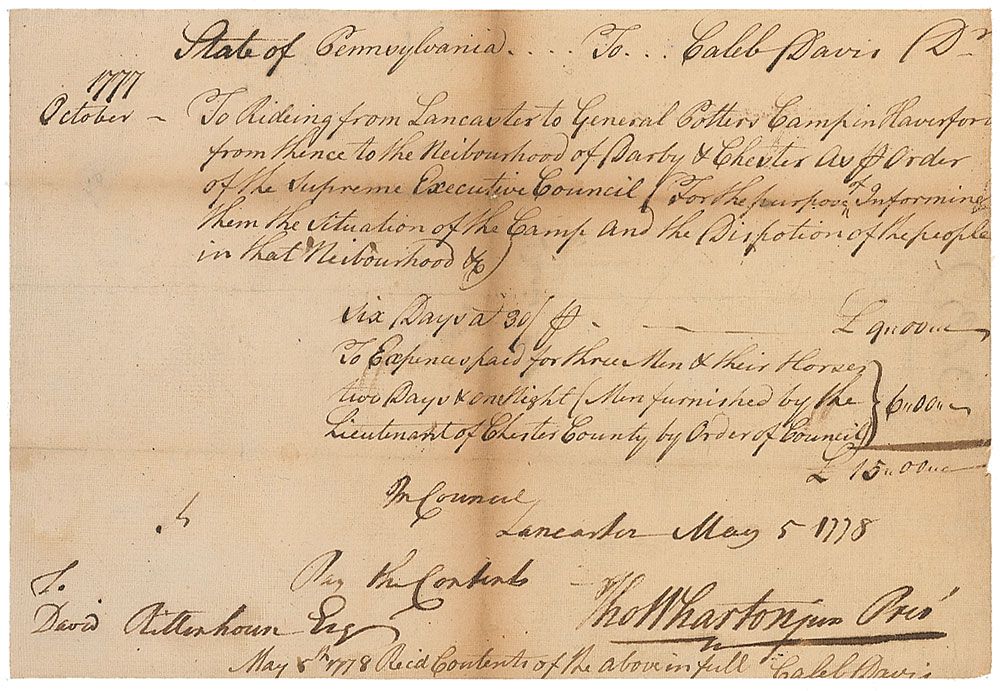 State of Pennsylvania .... To... Caleb Davis Dr
1777
October – To Rideing from Lancaster to General Potters Camp in Haverford
from thence to the Neibourhood of Darby & Chester As ⅌ Order
of the Supreme Executive Council (For the purpose of Informing
them the Situation of the Camp and the Dispotion of the people
in that Neibourhood &c)
Six Days a 30/ ⅌ . — £ 9,,00,,—
To Expences paid for three Men & their Horses
two Days & one Night (Men furnished by the } 6,,00,,—
Lieutenant of Chester County by Order of Council)
£ 15,,00,,—
In Council
Lancaster May 5 1778
Pay the Contents
Tho Wharton jun Pres
To
David Rittenhouse Esq
May 5th 1778 Recd Contents of the above in full Caleb Davis